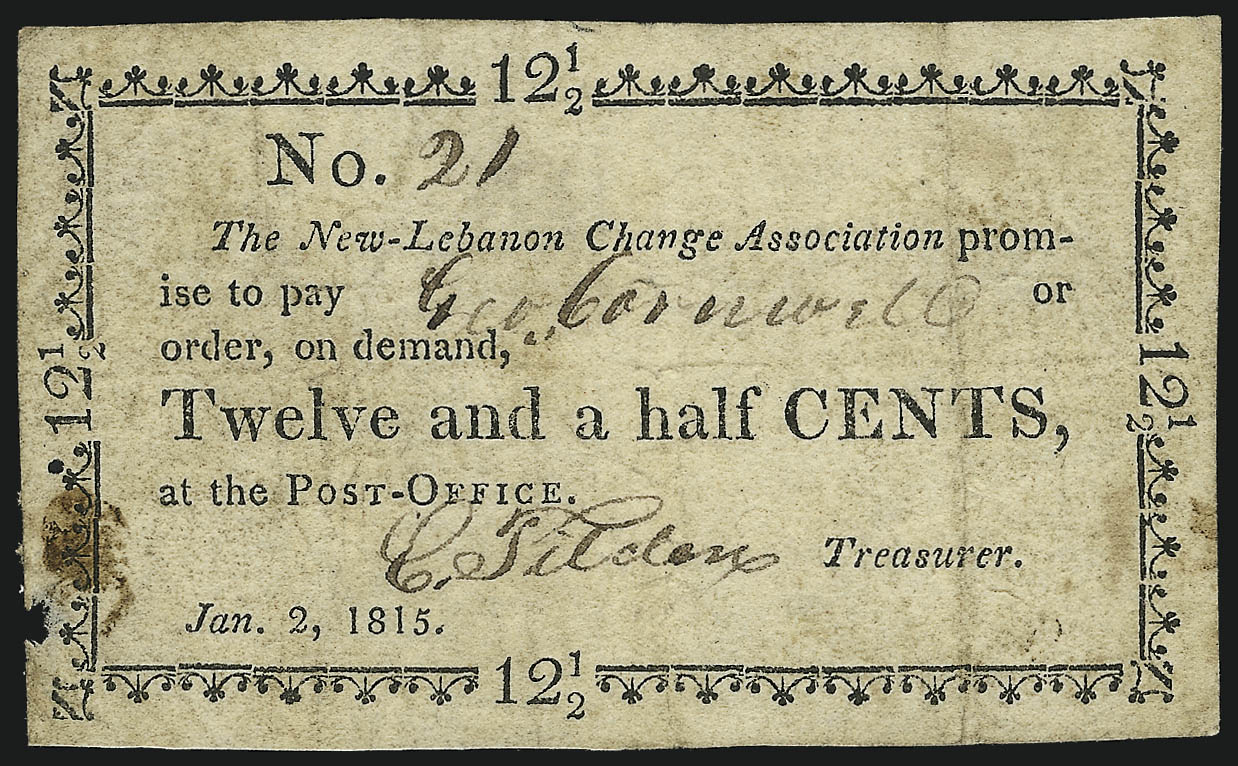 12 1/2
No. 21
The New-Lebanon Change Association prom-
ise to pay Geo. Cornwell or
order, on demand,
Twelve and a half CENTS,
at the POST-OFFICE.
C. Tilden Treasurer.
Jan. 2, 1815.
12 1/2
12 1/2
12 1/2